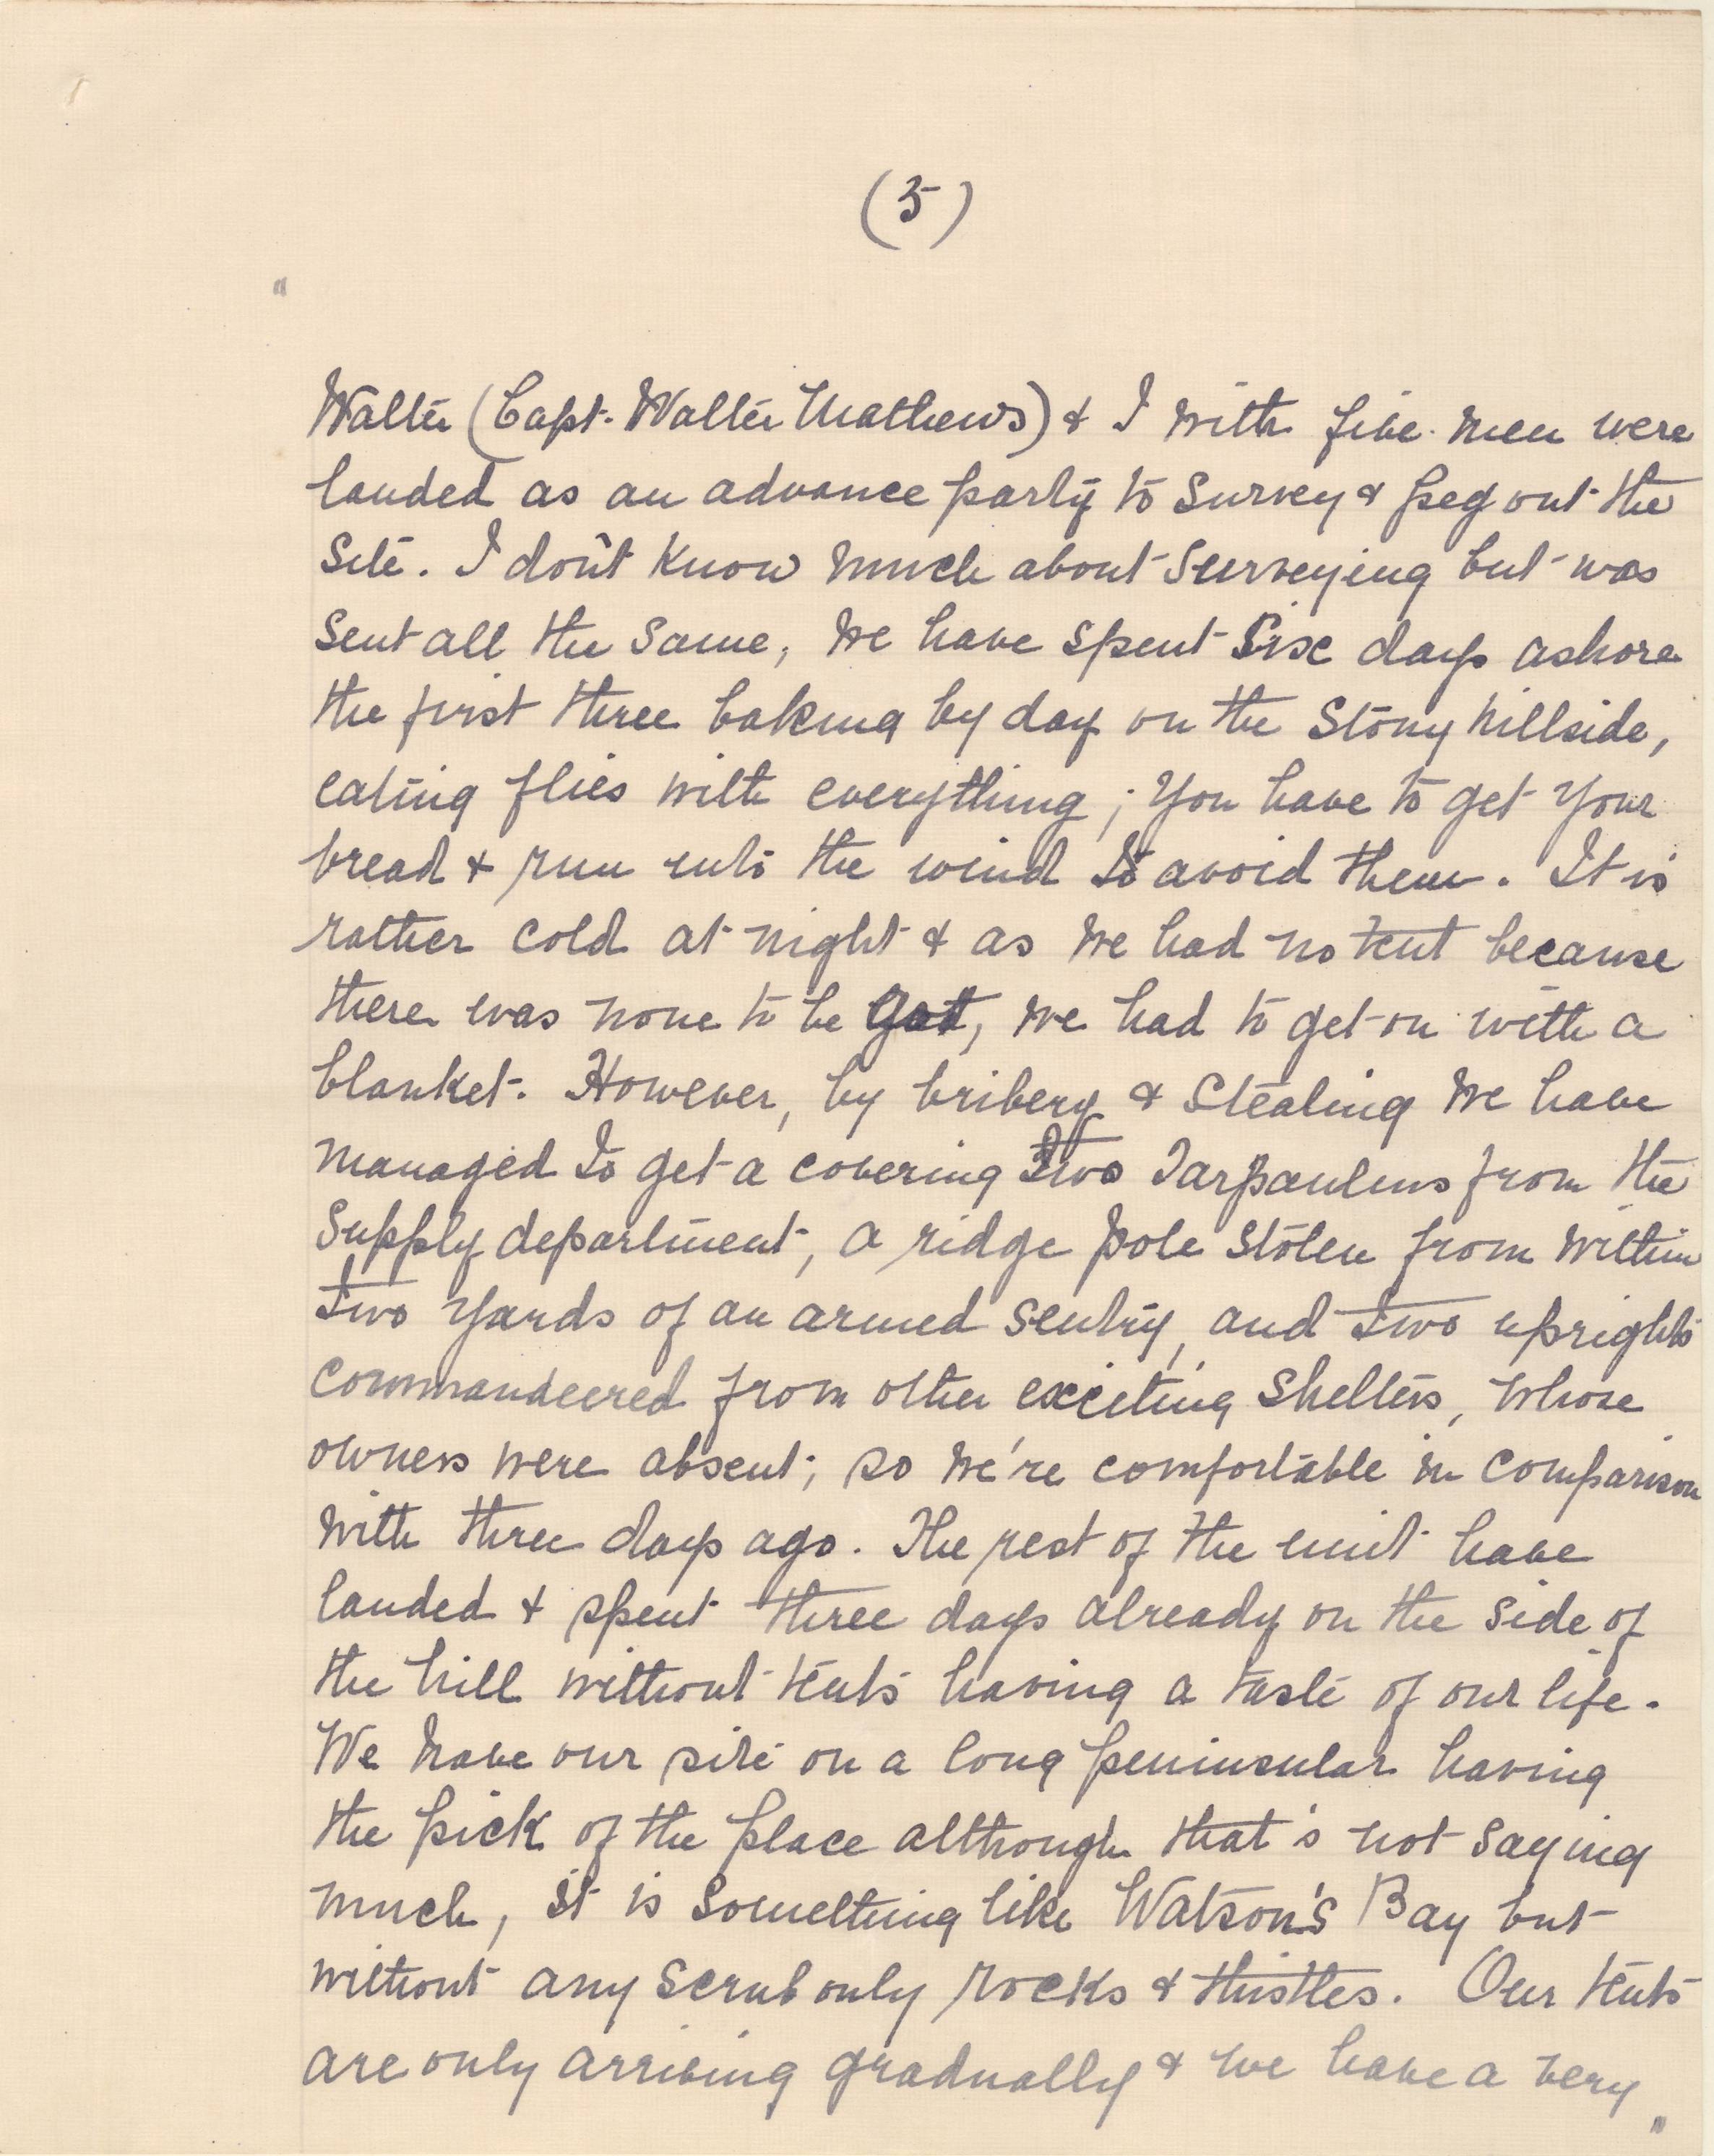 (5)
"
Walter (Capt. Walter Mathews) & I with five men were
landed as an advance party to survey & peg out the
site. I don't know much about surveying but was
sent all the same, we have spent six days ashore
the first three baking by day on the stony hillside,
eating flies with everything; you have to get your
bread & run into the wind to avoid them. It is
rather cold at night & as we had no tent because
there was none to be got, we had to get on with a
blanket. However, by bribery & stealing we have
managed to get a covering two Tarpaulins from the
Supply department, a ridge pole stolen from within
two yards of an armed sentry, and two uprights
commandeered from other exciting shelters, whose
owners were absent; so we're comfortable in comparison
with three days ago. The rest of the unit have
landed & spent three days already on the side of
the hill without tents having a taste of our life.
We have our site on a long peninsular having
the pick of the place although that's not saying
much, it is something like Watson's Bay but
without any scrub only rocks & thistles. Our tents
are only arriving gradually & we have a very
"